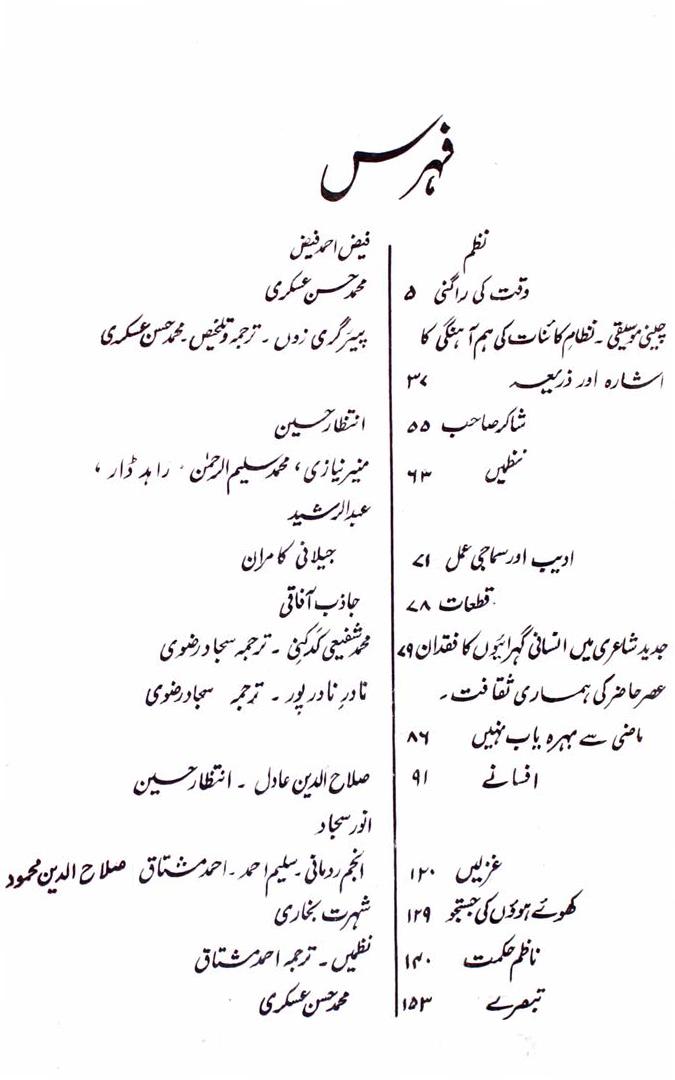 فہرس
نظم فیض احمد فیض
وقت کی راگنی ۵ محمد حسن عسکری
چینی موسیقی ۔ نظامِ کائنات کی ہم آہنگی کا پیئرگری زوں ۔ ترجمہ و تلخیص ۔ محمد حسن عسکری
اشارہ اور ذریعہ ۳۷
شاکر صاحب ۵۵ انتظار حسین
نظمیں ۶۳ منیر نیازی، محمد سلیم الرحمٰن ، زاہد ڈار ،
عبدالرشید
ادیب اور سماجی عمل ۷۱ جیلانی کامران
قطعات ۷۸ جاذب آفاقی
جدید شاعری میں انسانی گہرائیوں کا فقدان ۷۹ محمد شفیعی کدکنی ۔ ترجمہ سجاد رضوی
عصر حاضر کی ہماری ثقافت ۔ نادرِ نادر پور ۔ ترجمہ سجاد رضوی
ماضی سے بہرہ یاب نہیں ۸۶
افسانے ۹۱ صلاح الدین عادل ۔ انتظار حسین
انور سجاد
غزلیں ۱۲۰ انجم رومانی ۔ سلیم احمد ۔ احمد مشتاق صلاح الدین محمود
کھوئے ہوؤں کی جستجو ۱۲۹ شہرت بخاری
ناظم حکمت ۱۴۰ نظمیں ۔ ترجمہ احمد مشتاق
تبصرے ۱۵۳ محمد حسن عسکری